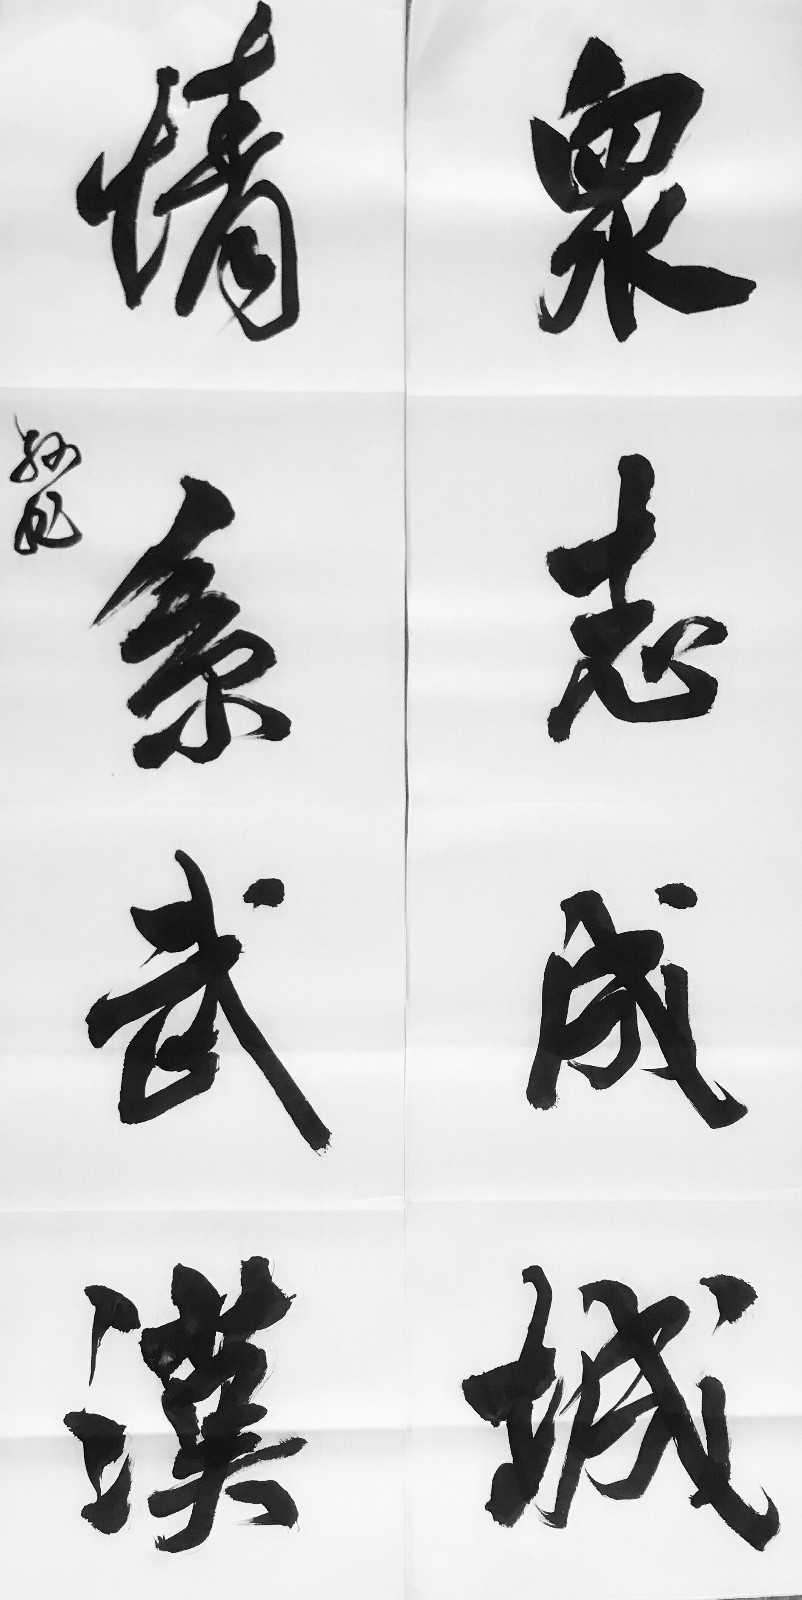 眾志成城
情系武漢